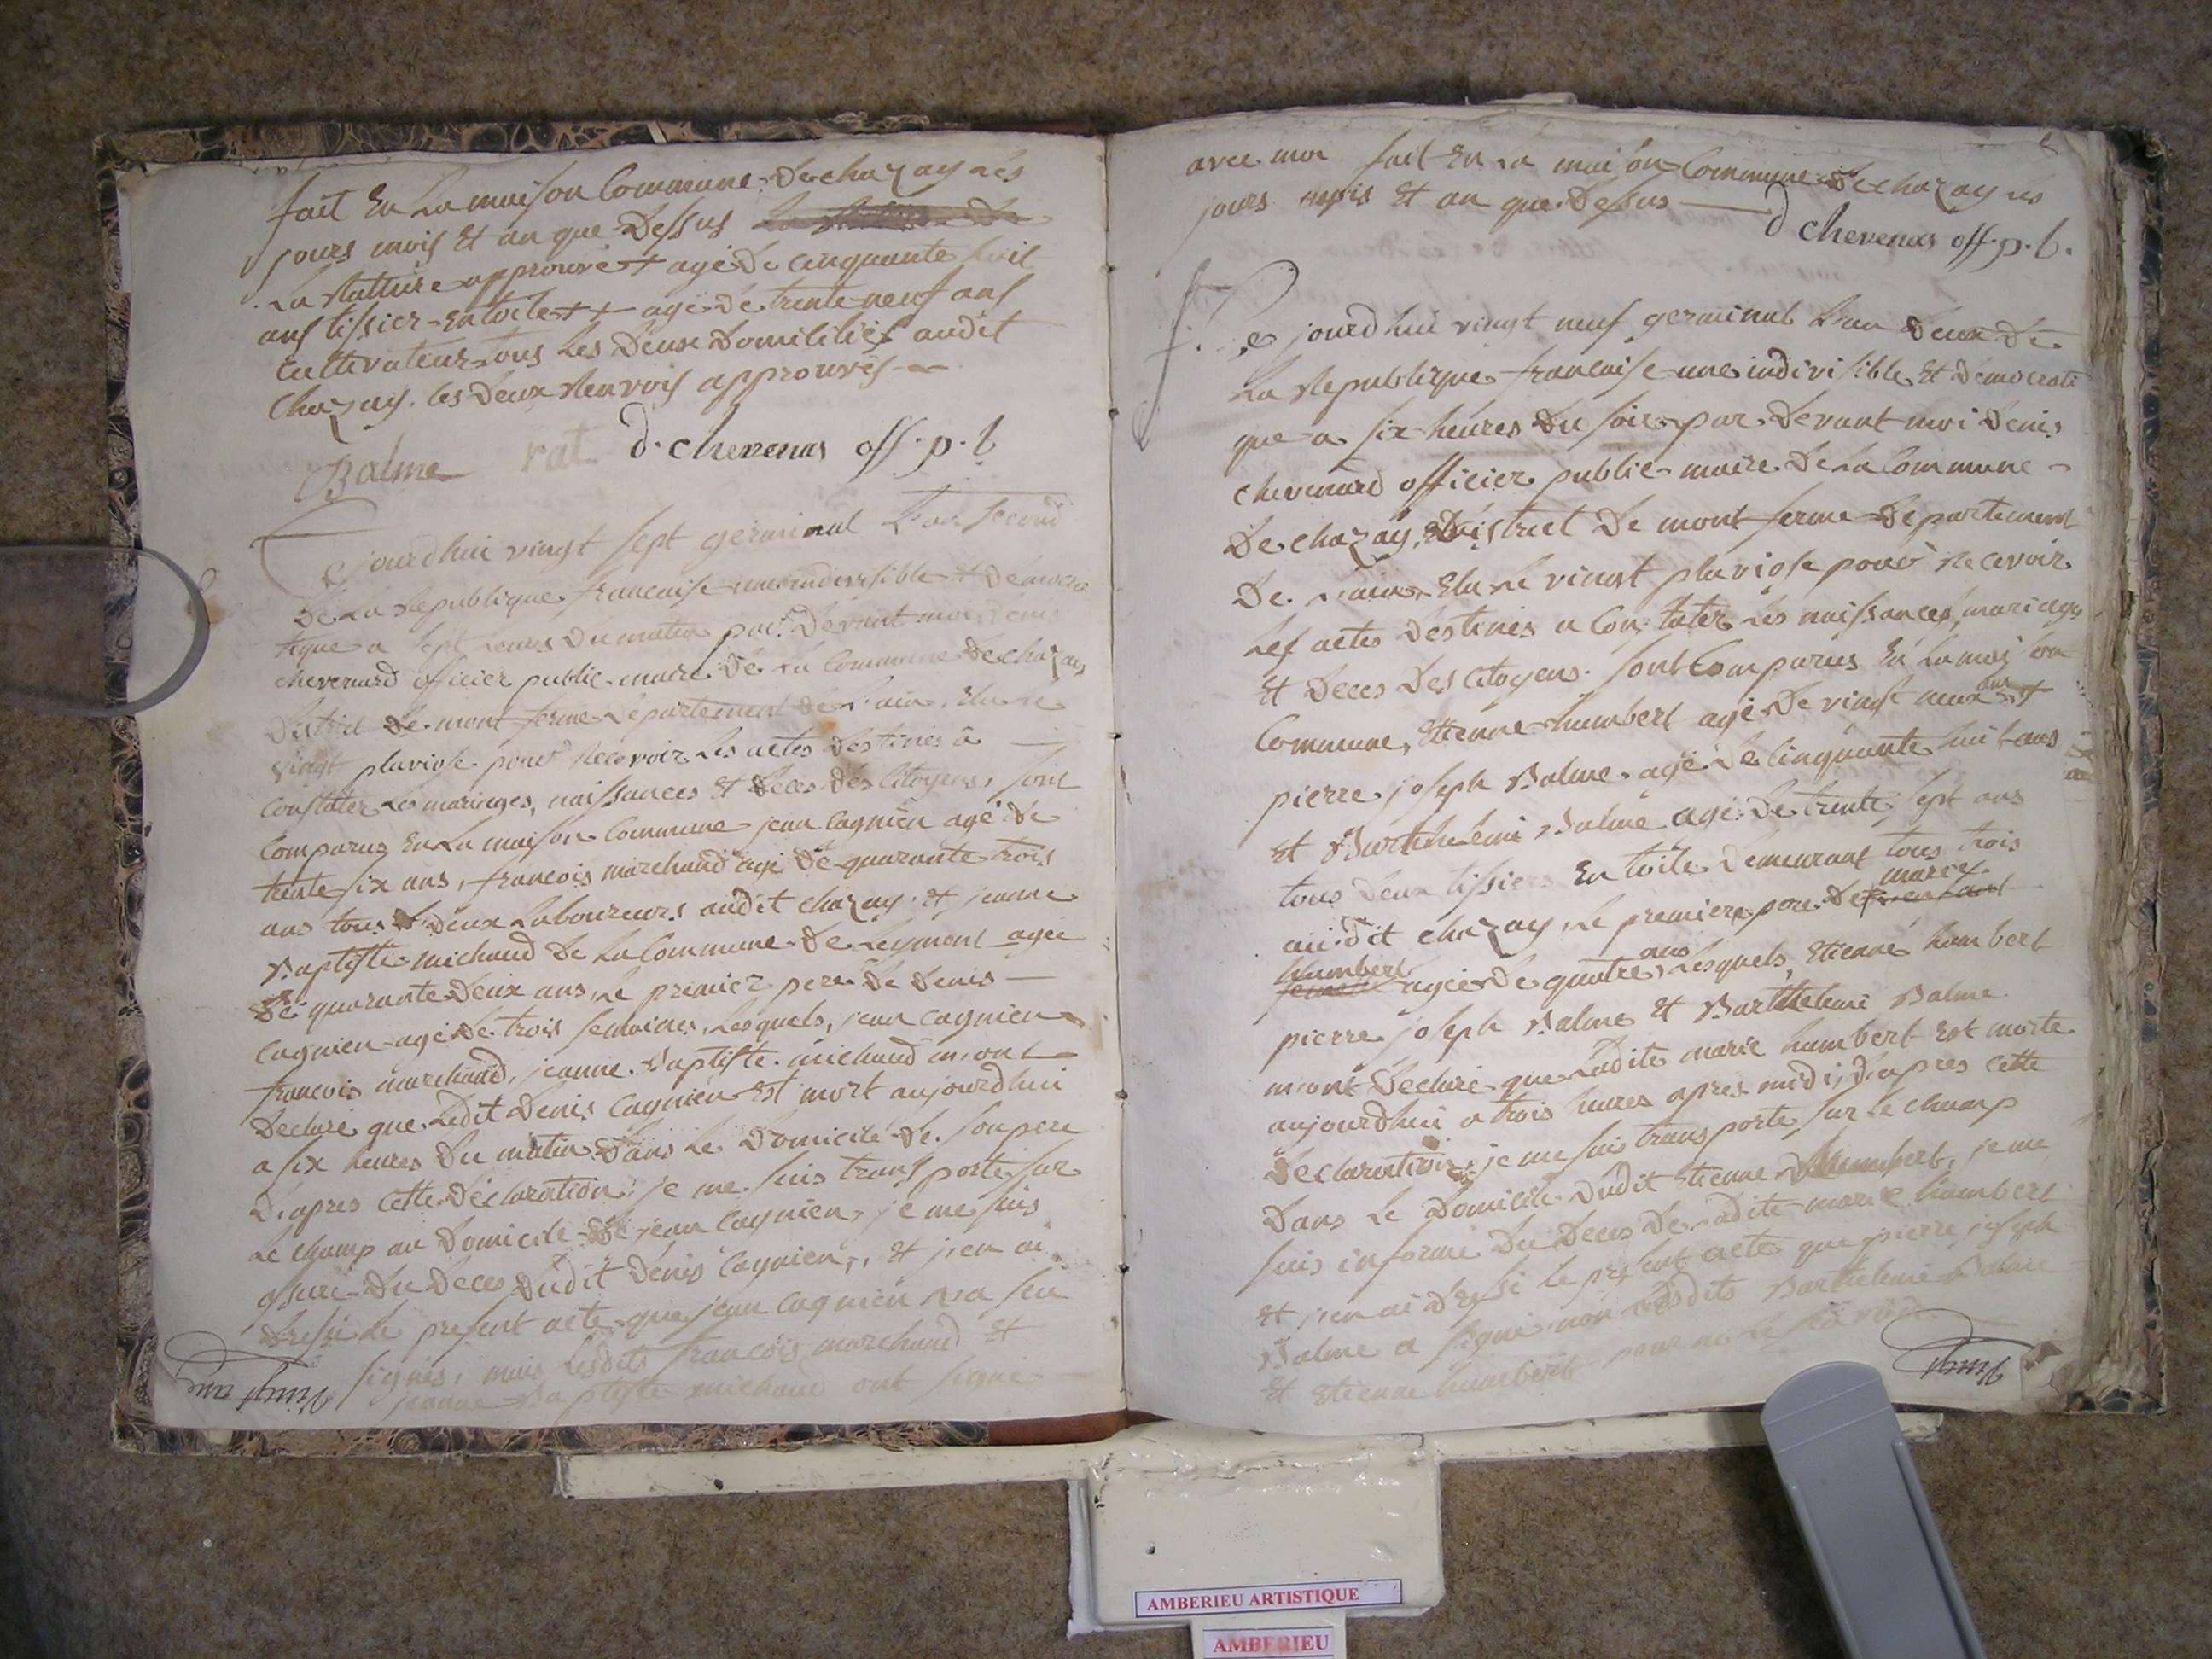 fait En La maison Commune de chazay Les
jours mois Et an que dessus
La Rature approuvé + agé de cinquante huit
ans tissier En toile + + agé de trente neuf ans
cultivateur tous Les deux domiliciés audit
Chazay. les deux Renvois approuvés
Balme rat d. chevenas off. p. b
Ce jourdhui vingt sept germinal L'an second
De La Republique francaise une indivisible & democra
tique a sept heures du matin par devant moi denis
chevenard officier public maire De La Commune de chazay
District de mont ferme Département de l'ain, Elu Le
vingt pluviose pour Recevoir Les actes destinés a
Constater Les mariages, naissances Et deces des Citoyens, sont
Comparus En La maison Commune jean Cagnien agé de
trente six ans, francois marchand agé de quarante trois
ans tous deux Laboureurs audit chazay, Et jeanne
Baptiste michaud De La Commune De Leyment agée
De quarante deux ans, Le premier pere De Denis
Cagnien agé de trois semaines, Lesquels, jean Cagnien
francois marchand, jeanne Baptiste michaud m'ont
Declaré que Ledit Denis Cagnien Est mort aujourdhui
a six heures Du matin Dans Le Domicile De Son pere
D'apres Cette Déclaration, je me suis transporté sur
Le champ au Domicile de jean Cagnien, je me suis
assuré Du Deces Dudit Denis Cagnien, Et j'en ai
dressé Le présent acte que jean Cagnien n'a seu
signés, mais Lesdits francois marchand Et
jeanne Baptiste michaud ont signé
avec moi fait En La maison Commune de chazay Les
jours mois Et an que dessus d chevenas off. p. b.
Ce jourd'hui vingt neuf germinal L'an deux De
La Republique francaise une indivisible Et democrati
que a six heures Du soir par devant moi denis
chevenard officier public maire De La Commune
De chazay, District De mont ferme Département
De l'ain, Elu Le vingt pluviose pour Recevoir
Les actes destinés a Constater Les naissances, mariages
Et Deces Des Citoyens. Sont Comparus En La maison
Commune, Etienne humbert agé De vingt neuf ans +
pierre joseph Balme agé De Cinquante huit ans
Et Barthelemi Balme agé De trente sept ans
tous deux tissiers En toile Demeurant tous trois
audit chazay, Le premier pere De marie
humbert agée De quatre ans Lesquels, Etienne humbert
pierre joseph Balme Et Barthelemi Balme
m'ont Declaré que Ladite marie humbert Est morte
aujourdhui a trois heures apres midi, D'apres Cette
Declaration, je me suis transporté sur Le champ
Dans Le Domicile Dudit Etienne humbert, je me
suis informé Du Deces De Ladite marie humbert
Et j'en ai Dressé Le présent acte que pierre joseph
Balme a signé non Lesdits Barthelemi Balme
Et Etienne humbert pour ne Le sçavoir
AMBERIEU ARTISTIQUE
AMBERIEU